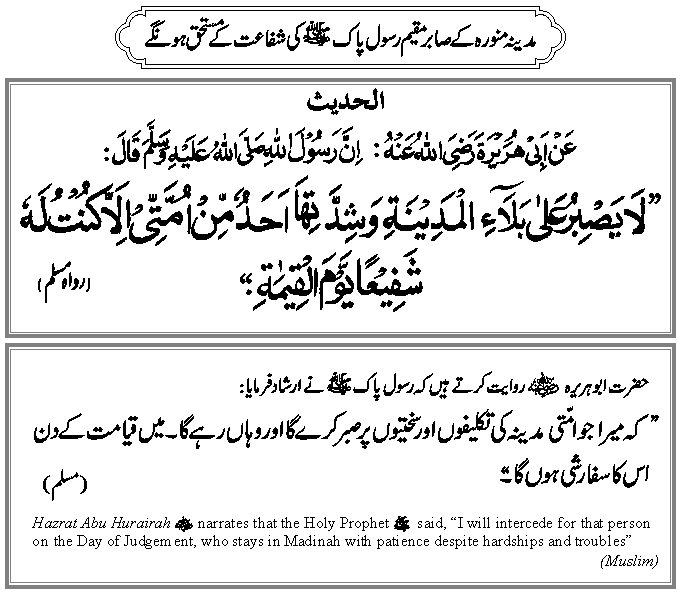 مدینہ منورہ کے صابر مقیم رسول پاک ﷺ کی شفاعت کے مستحق ہونگے
الحدیث
عَنْ اَبِیْ هُرَیْرَةَ رَضِیَ اللّٰهُ عَنْهُ: اِنَّ رَسُوْلَ اللّٰهِ صَلَّی اللّٰهُ عَلَیْهِ وَسَلَّمَ قَالَ:
”لَا یَصْبِرُ عَلٰی بَلَآءِ الْمَدِیْنَةِ وَشِدَّتِهَا اَحَدٌ مِّنْ اُمَّتِیْ اِلَّا کُنْتُ لَهٗ
شَفِیْعًا یَّوْمَ الْقِیٰمَةِ۔“ (رواہ مسلم)
حضرت ابوہریرہ ؓ روایت کرتے ہیں کہ رسول پاک ﷺ نے ارشاد فرمایا:
”کہ میرا جو امّتی مدینہ کی تکلیفوں اور سختیوں پر صبر کرے گا اور وہاں رہے گا۔ میں قیامت کے دن
اس کا سفارشی ہوں گا۔“ (مسلم)
Hazrat Abu Hurairah ؓ narrates that the Holy Prophet ﷺ said, “I will intercede for that person
on the Day of Judgement, who stays in Madinah with patience despite hardships and troubles”
(Muslim)